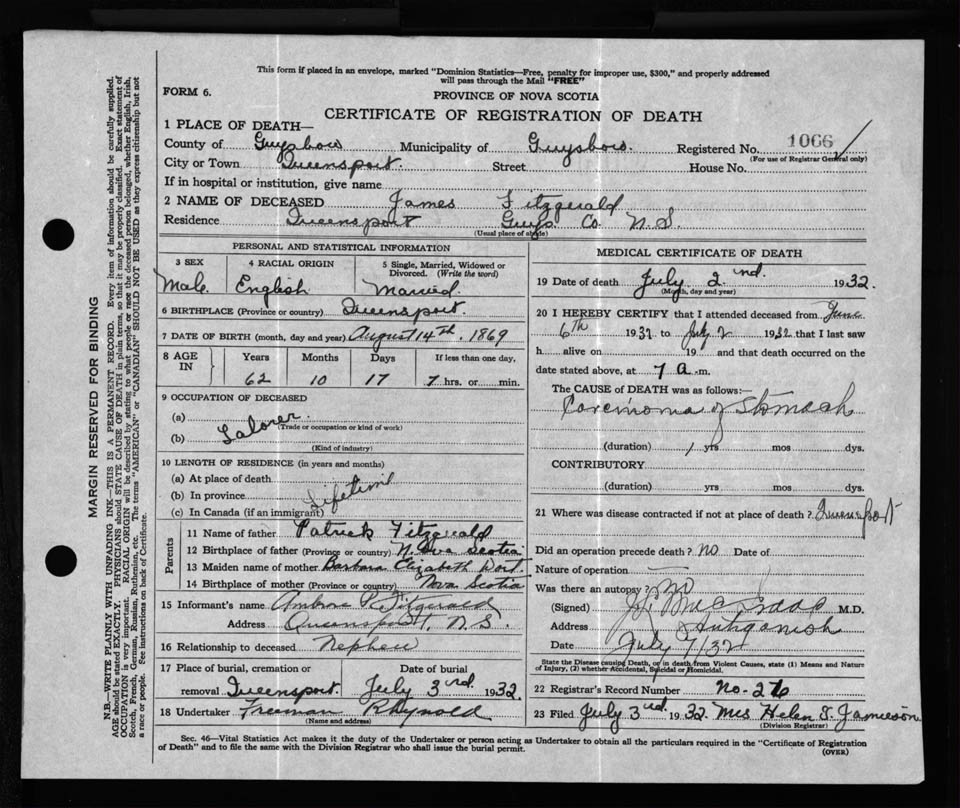 This form if placed in an envelope, marked "Dominion Statistics—Free, penalty for improper use, $300," and properly addressed
will pass through the Mail "FREE"
FORM 6.
PROVINCE OF NOVA SCOTIA
CERTIFICATE OF REGISTRATION OF DEATH
1 PLACE OF DEATH—
County of Guysboro Municipality of Guysboro. Registered No. 1066
(For use of Registrar General only)
City or Town Queensport. Street House No.
If in hospital or institution, give name
2 NAME OF DECEASED James Fitzgerald
Residence Queensport Guys. Co. N.S.
(Usual place of abode)
PERSONAL AND STATISTICAL INFORMATION
3 SEX 4 RACIAL ORIGIN 5 Single, Married, Widowed or
Divorced. (Write the word)
Male English Married.
6 BIRTHPLACE (Province or country) Queensport.
7 DATE OF BIRTH (month, day and year) August 14th. 1869
8 AGE IN Years Months Days If less than one day,
62 10 17 7 hrs. or min.
9 OCCUPATION OF DECEASED
(a) Laborer.
(Trade or occupation or kind of work)
(b)
(Kind of industry)
10 LENGTH OF RESIDENCE (in years and months)
(a) At place of death
(b) In province Lifetime
(c) In Canada (if an immigrant)
Parents
11 Name of father Patrick Fitzgerald
12 Birthplace of father (Province or country) Nova Scotia
13 Maiden name of mother Barbara Elizabeth
14 Birthplace of mother (Province or country) Nova Scotia
15 Informant's name Ambrose P. Fitzgerald
Address Queensport, N.S.
16 Relationship to deceased Nephew
17 Place of burial, cremation or Date of burial
removal Queensport. July 3rd. 1932.
18 Undertaker Freeman
(Name and address)
MEDICAL CERTIFICATE OF DEATH
19 Date of death July 2nd. 1932.
(Month, day and year)
20 I HEREBY CERTIFY that I attended deceased from June
6th 1932 to July 2 1932 that I last saw
h alive on 19 and that death occurred on
date stated above, at 7 a.m.
The CAUSE OF DEATH was as follows:—
Carcinoma of Stomach
(duration) 1 yrs mos dys.
CONTRIBUTORY
(duration) yrs mos dys.
21 Where was disease contracted if not at place of death? Queensport
Did an operation precede death? no Date of
Nature of operation
Was there an autopsy? no
(Signed) M.D.
Address Antigonish
Date July 7/32
State the Disease causing Death, or in death from Violent Causes, state (1) Means and Nature
of Injury, (2) whether Accidental, Suicidal or Homicidal.
22 Registrar's Record Number No. 276
23 Filed July 3rd. 1932. Mrs Helen S. Jamieson
(Division Registrar)
Sec. 46—Vital Statistics Act makes it the duty of the Undertaker or person acting as Undertaker to obtain all the particulars required in the "Certificate of Registration
of Death" and to file the same with the Division Registrar who shall issue the burial permit.
(OVER)
MARGIN RESERVED FOR BINDING
N.B.—WRITE PLAINLY WITH UNFADING INK—THIS IS A PERMANENT RECORD. Every item of information should be carefully supplied.
AGE should be stated EXACTLY. PHYSICIANS should STATE CAUSE OF DEATH in plain terms, so that it may be properly classified. Exact statement of
OCCUPATION is very important. RACIAL ORIGIN will be described by stating to what people or race the deceased person belonged, whether English, Irish,
Scotch, French, German, Russian, Ruthenian, etc. The terms "AMERICAN" or "CANADIAN" SHOULD NOT BE USED as they express citizenship but not
a race or people. See instructions on back of Certificate.